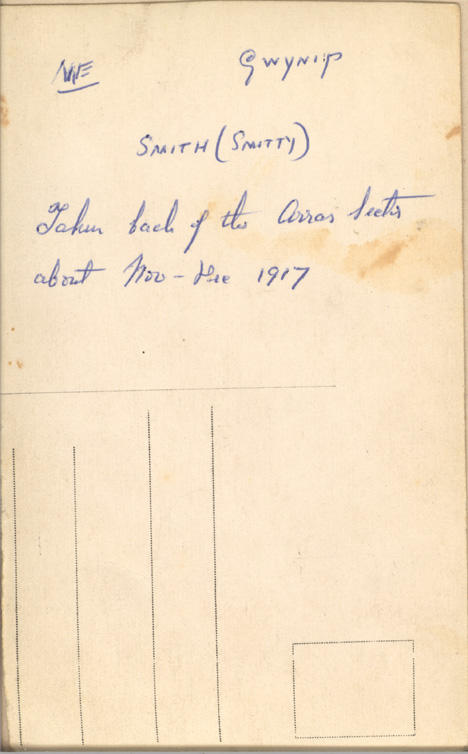 ME GWYNIP
SMITH (SMITTY)
Taken back of the Arras Sector
about Nov - Dec 1917